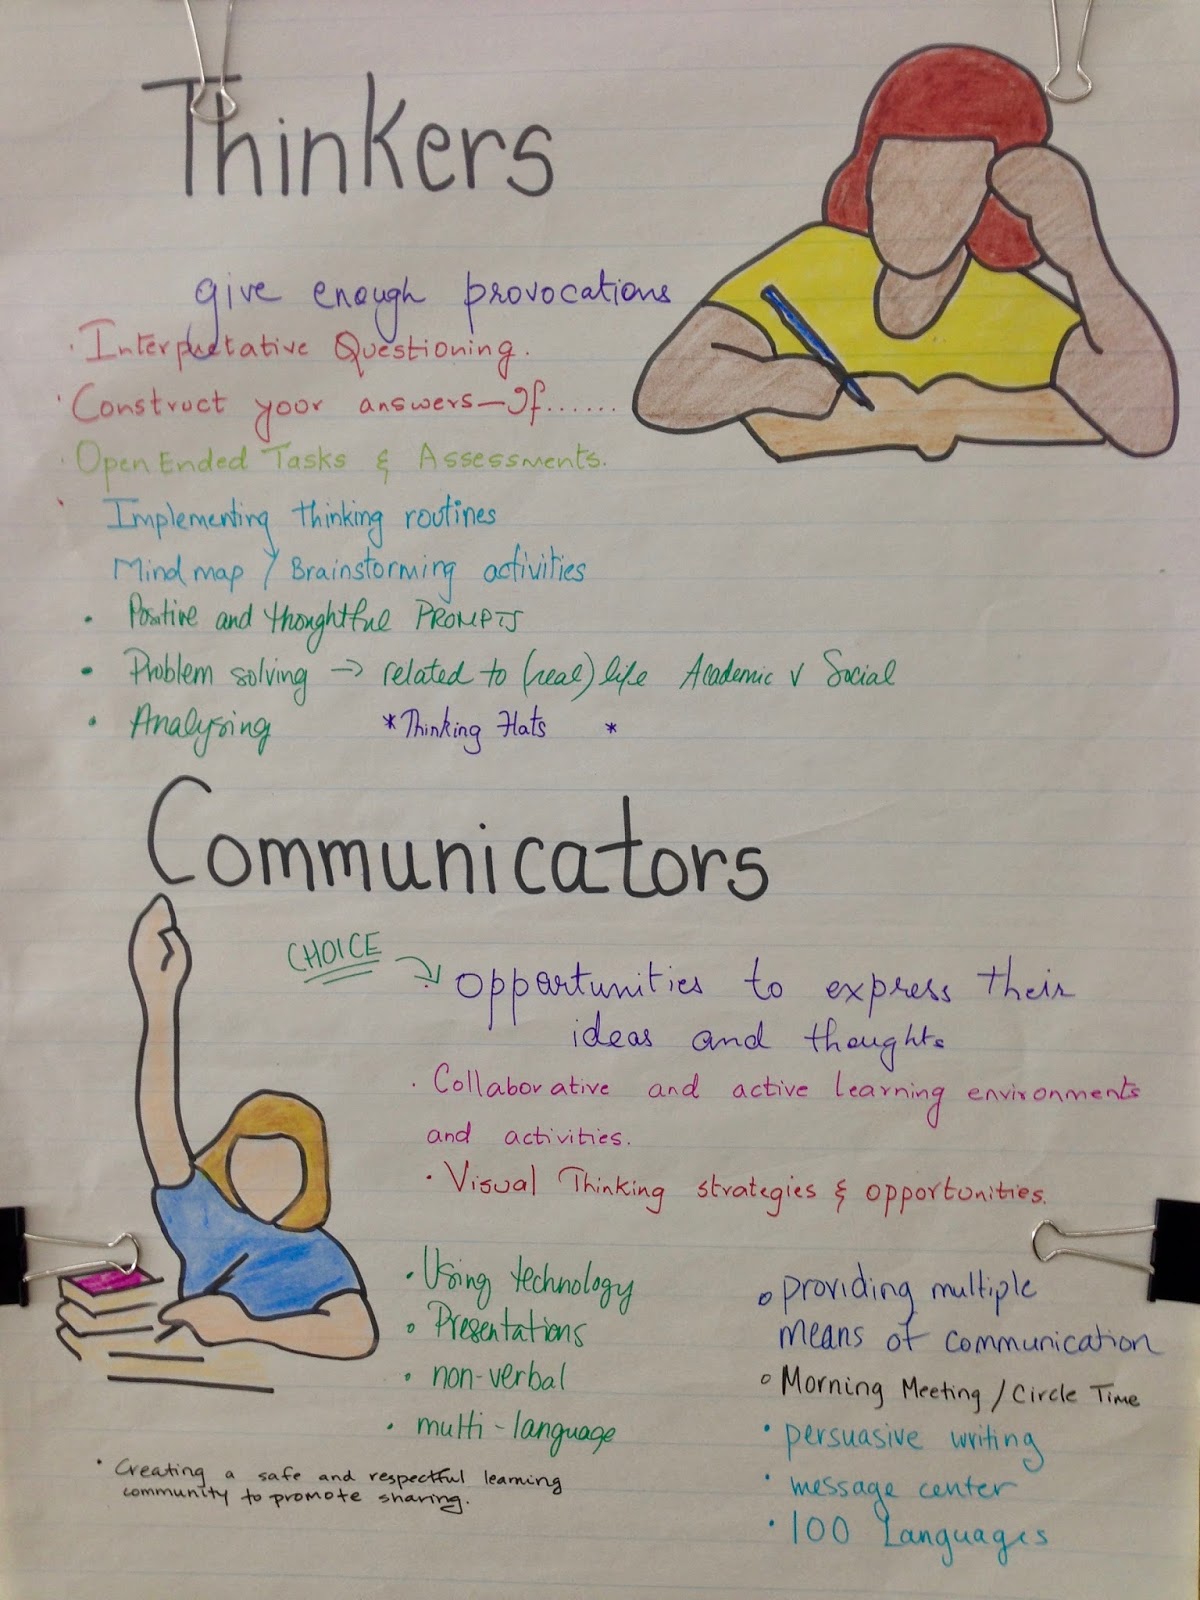 Thinkers
give enough provocations
· Interpretative Questioning.
· Construct your answers—If.......
· Open Ended Tasks & Assessments.
· Implementing thinking routines
Mind map / Brainstorming activities
• Positive and thoughtful PROMPTS
• Problem solving → related to (real) life Academic v Social
• Analysing *Thinking Hats *
Communicators
CHOICE → opportunities to express their
ideas and thoughts
· Collaborative and active learning environments
and activities.
· Visual Thinking strategies & opportunities.
• Using technology
• Presentations
• non-verbal
• multi-language
• Creating a safe and respectful learning
community to promote sharing.
• providing multiple
means of communication
• Morning Meeting / Circle Time
• persuasive writing
• message center
• 100 Languages